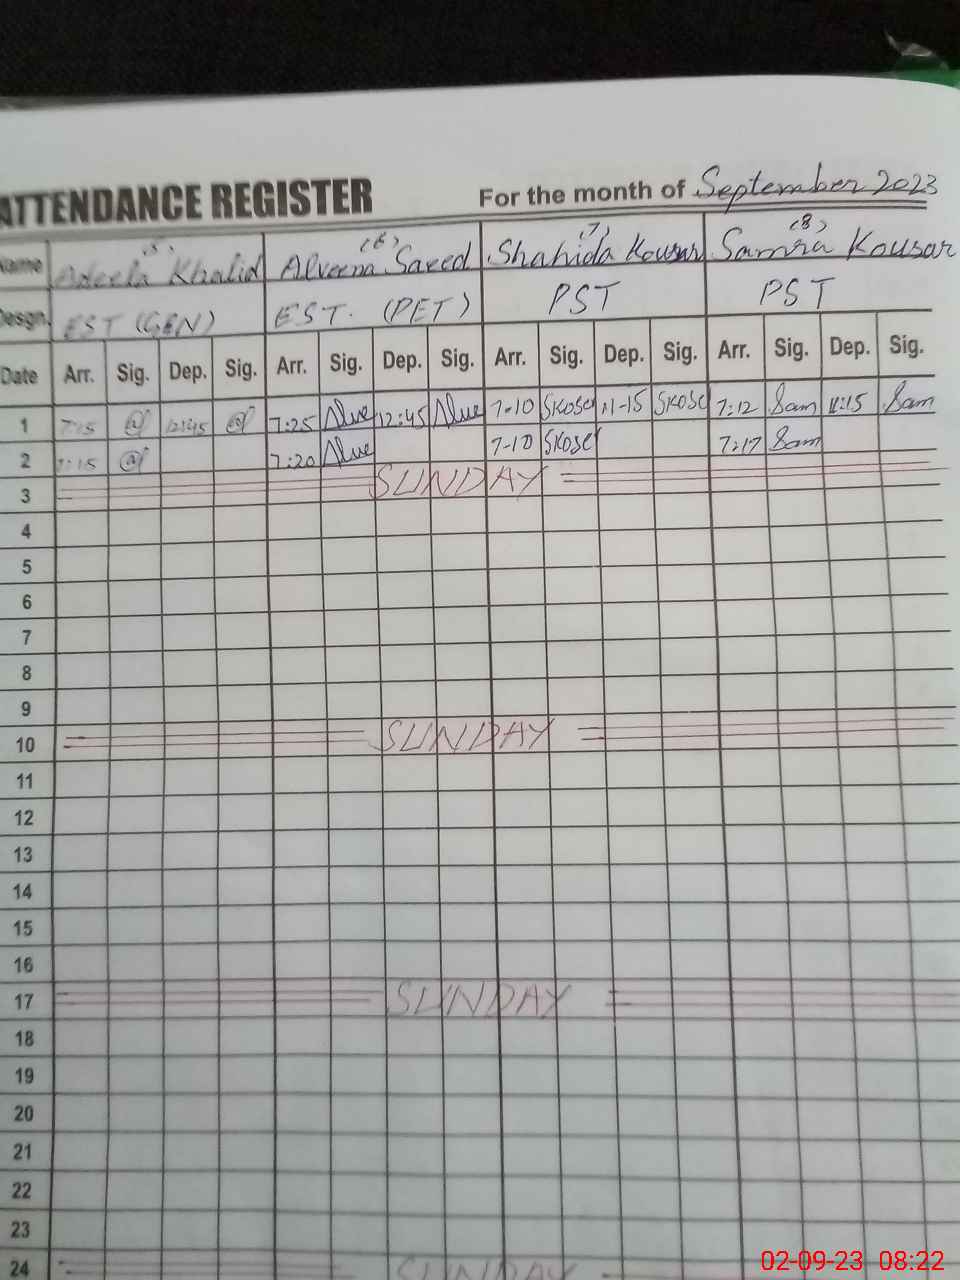 ATTENDANCE REGISTER For the month of September 2023
Name (5) Adeela Khalid (6) Alveena Saeed (7) Shahida Kousar (8) Samra Kousar
Design. EST (GEN) EST. (PET) PST PST
Date Arr. Sig. Dep. Sig. Arr. Sig. Dep. Sig. Arr. Sig. Dep. Sig. Arr. Sig. Dep. Sig.
1 7:15 12:45 7:25 Alve 12:45 Alve 7-10 SKose 11-15 SKose 7:12 Sam 11:15 Sam
2 7:15 7:20 Alve 7-10 SKose 7:17 Sam
3 SUNDAY
4
5
6
7
8
9
10 SUNDAY
11
12
13
14
15
16
17 SUNDAY
18
19
20
21
22
23
24 SUNDAY
02-09-23 08:22